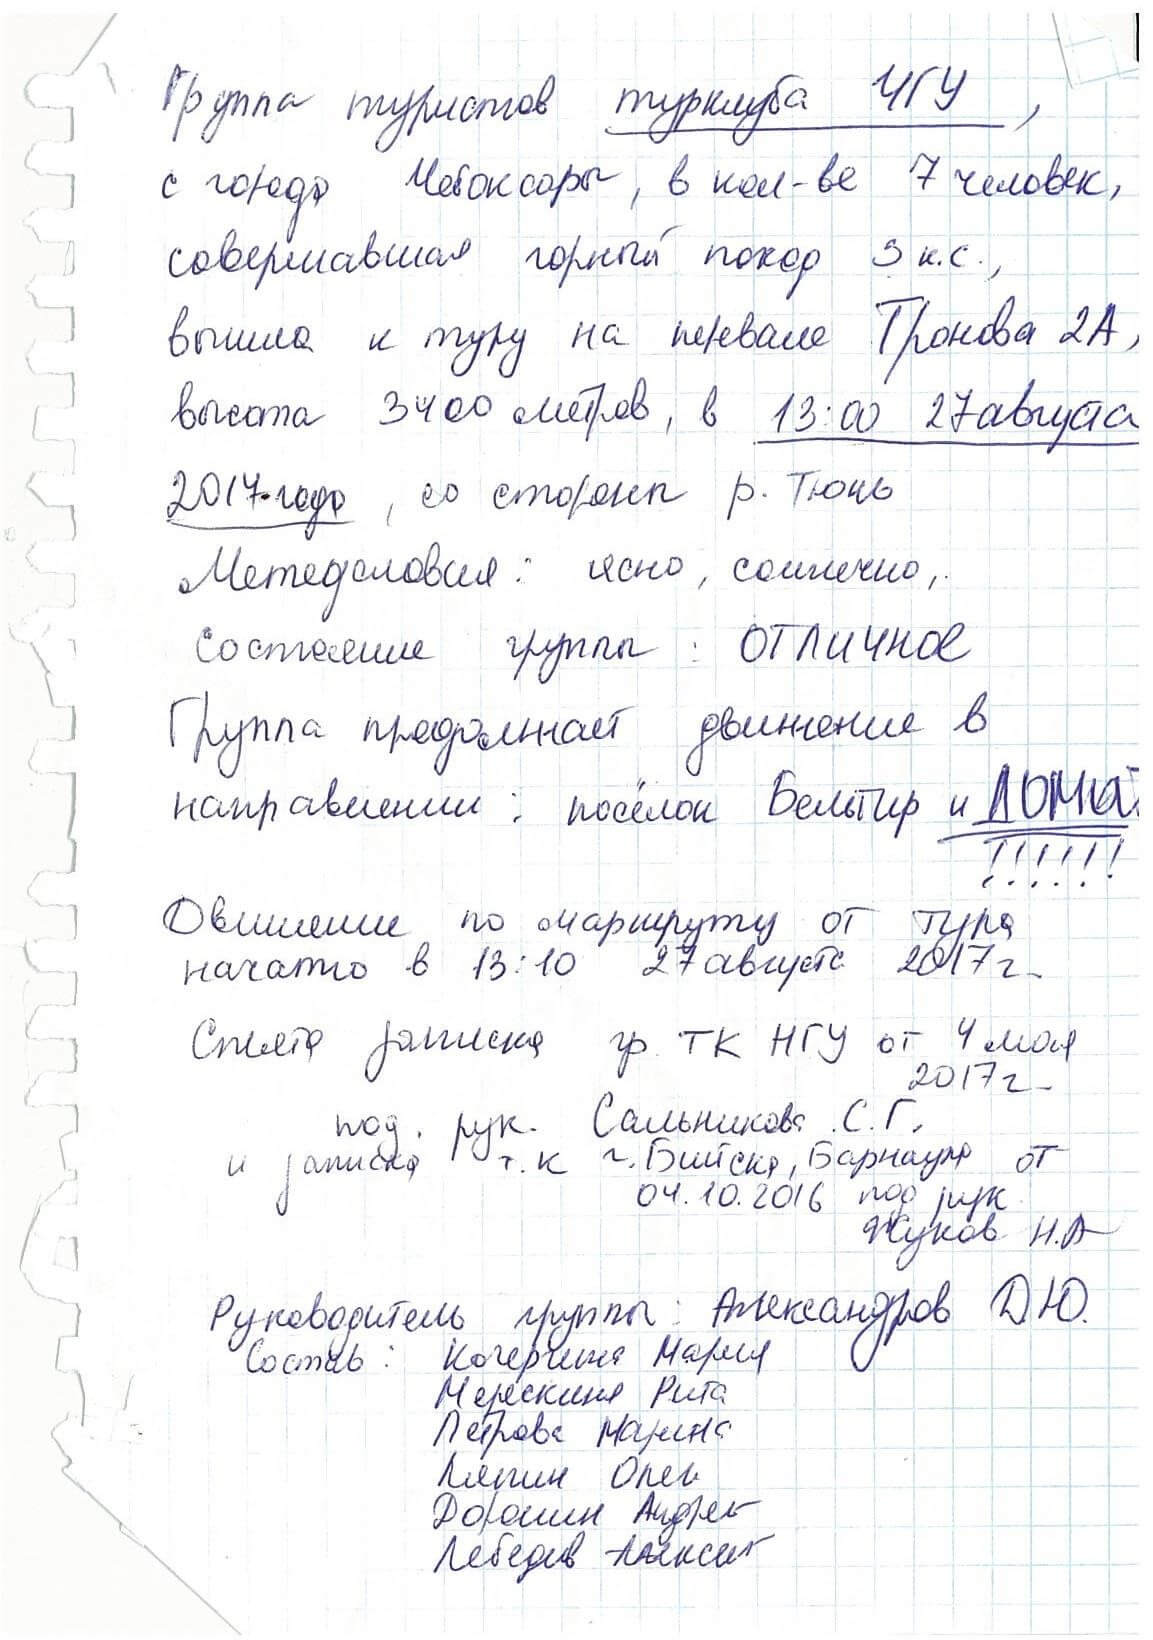 Группа туристов турклуба ЧГУ,
с города Чебоксары, в кол-ве 7 человек,
совершавшая горный поход 3 к.с.,
вышла к туру на перевале Тронова 2А,
высота 3400 метров, в 13:00 27 августа
2017 года, со стороны р. Тюнь
Метеоусловия: ясно, солнечно,
состояние группы: ОТЛИЧНОЕ
Группа продолжает движение в
направлении: посёлок Бельтир и ДОМОЙ
!!!!!!
Движение по маршруту от тура
начато в 13:10 27 августа 2017г.
Снята записка гр. ТК НГУ от 4 мая
2017г.
под. рук. Сальникова С.Г.
и записка т.к г. Бийска, Барнаула от
04.10.2016 под рук.
Жуков Н.А
Руководитель группы: Александров Д.Ю.
Состав: Мария
Рита
Петрова Марина
Ляпин Олег
Дорошин Андрей
Лебедев Алексей